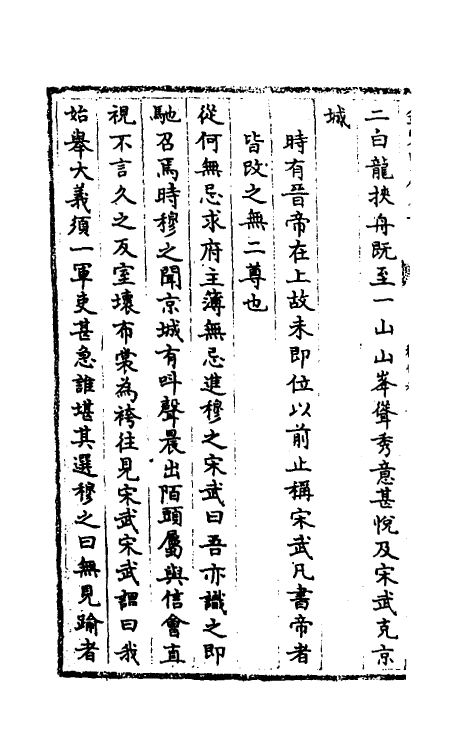 二白龍挾舟既至一山山峯聳秀意甚悅及宋武克京
城
時有晉帝在上故未即位以前止稱宋武凡書帝者
皆改之無二尊也
從何無忌求府主簿無忌進穆之宋武曰吾亦識之即
馳召焉時穆之聞京城有呌聲晨出陌頭屬與信會直
視不言久之反室壞布裳為袴往見宋武宋武謂曰我
始舉大義須一軍吏甚急誰堪其選穆之曰無見踰者